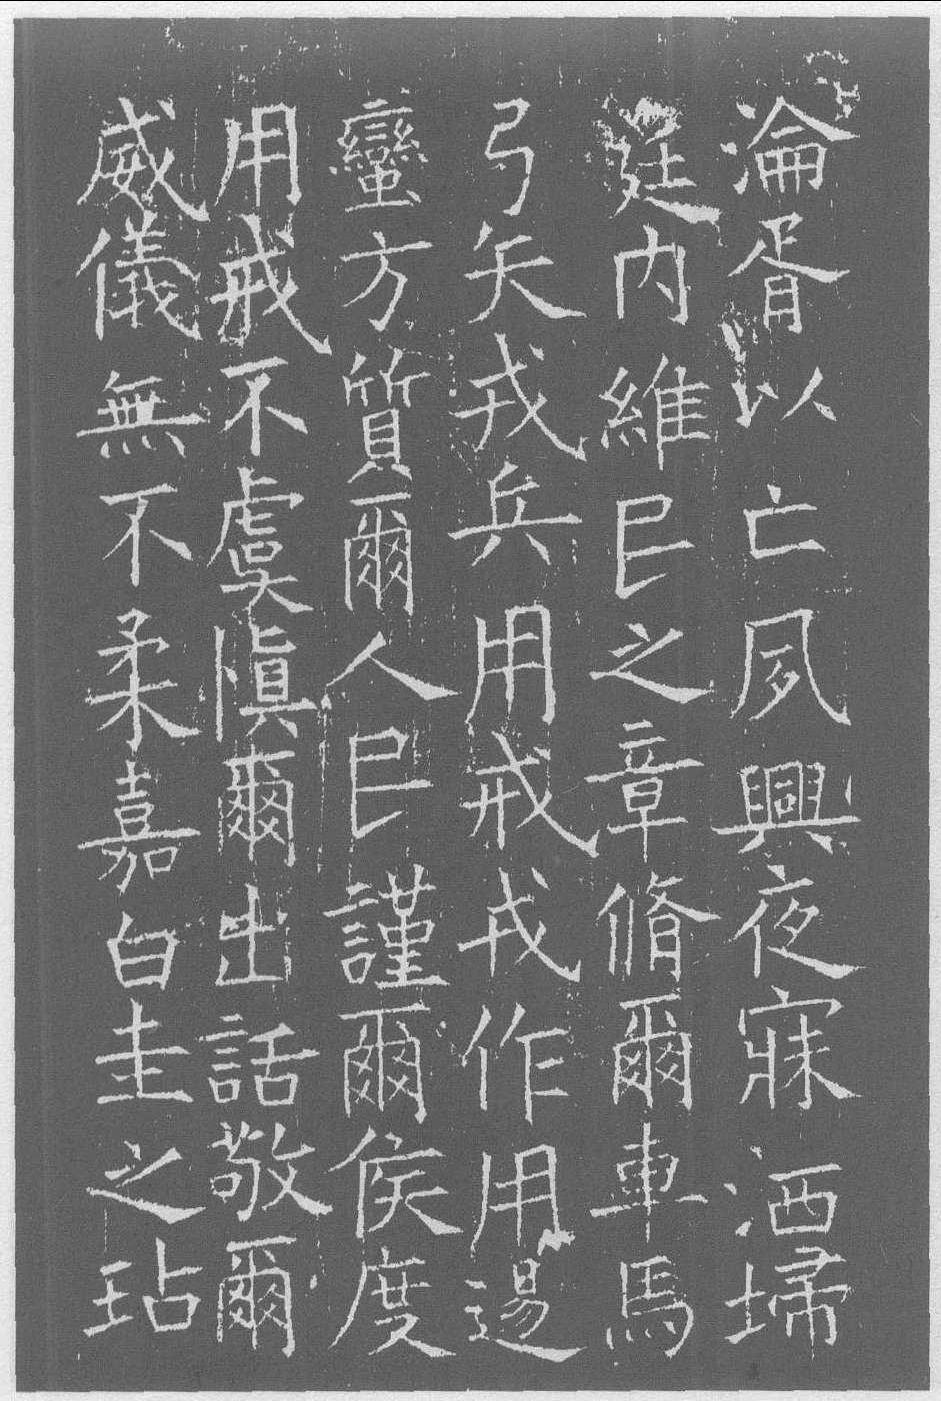 淪胥以亡夙興夜寐洒埽
廷内維民之章脩爾車馬
弓矢戎兵用戒戎作用逷
蠻方質爾人民謹爾侯度
用戒不虞愼爾出話敬爾
威儀無不柔嘉白圭之玷